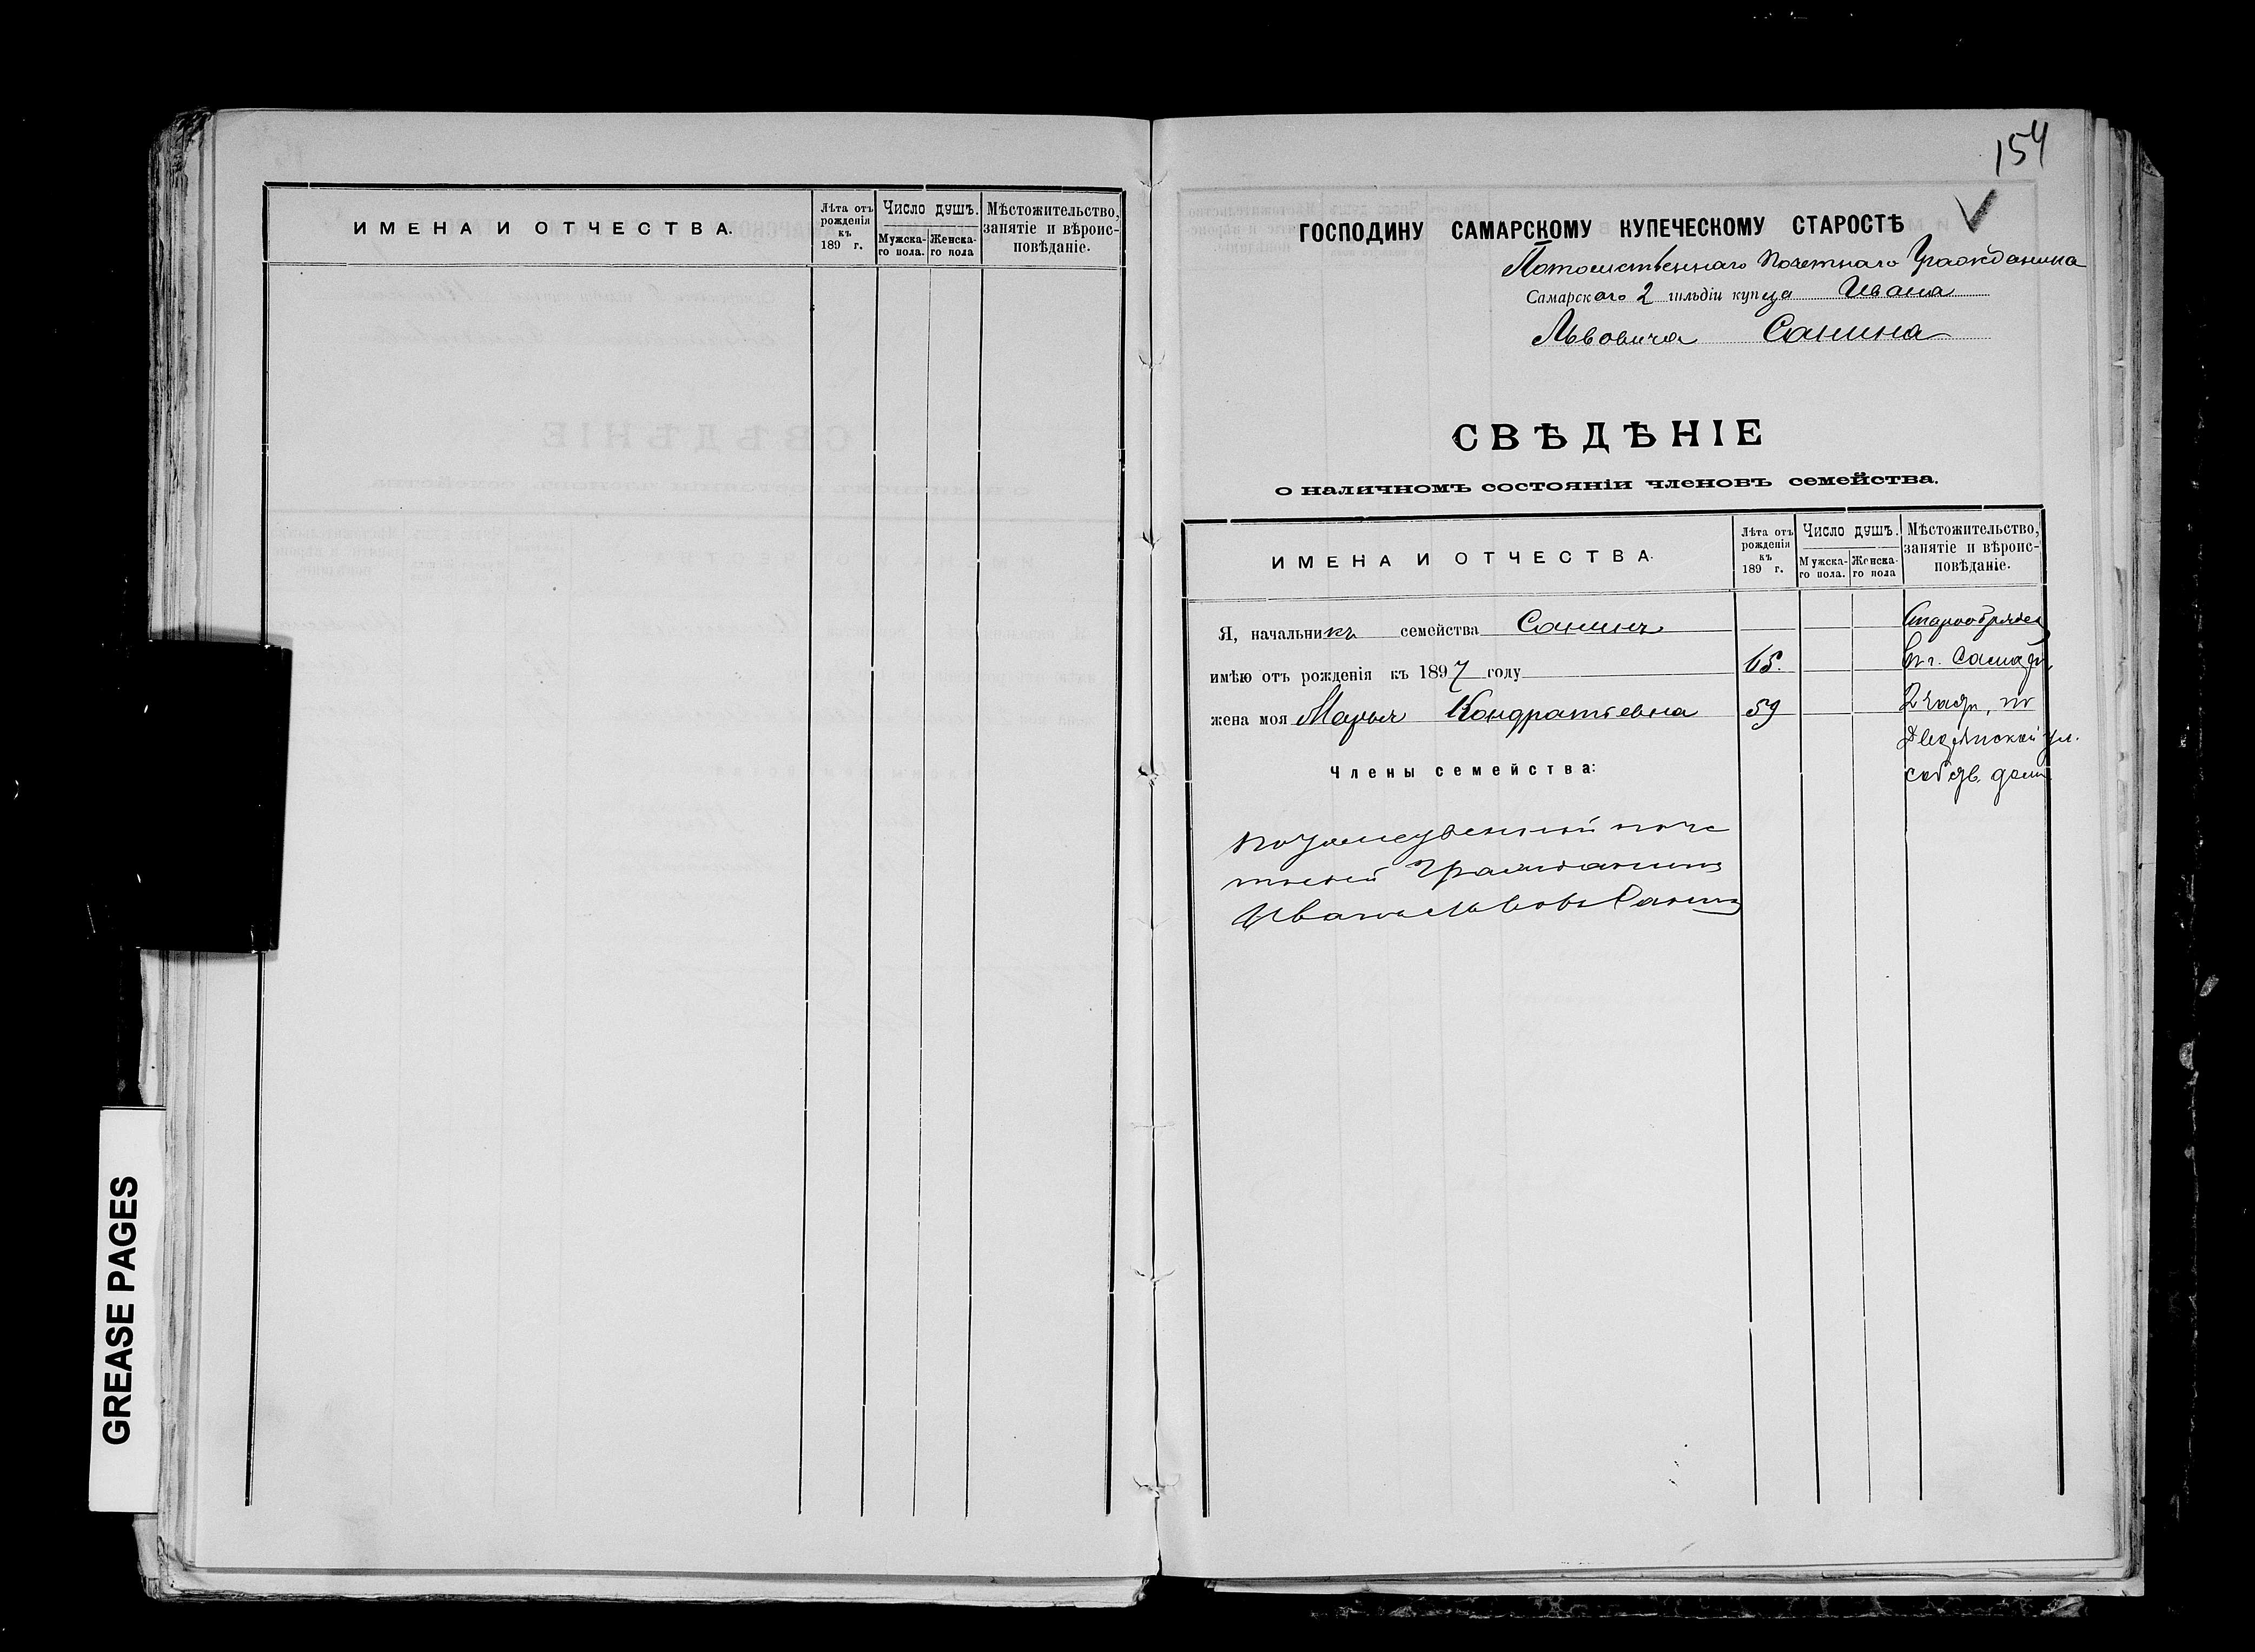 ИМЕНА И ОТЧЕСТВА.
Лѣта отъ рожденія къ 189 г.
Число душъ.
Мужска-го пола.
Женска-го пола
Мѣстожительство, занятіе и вѣроис-повѣданіе.
154
ГОСПОДИНУ САМАРСКОМУ КУПЕЧЕСКОМУ СТАРОСТѢ
Потомственнаго Почетнаго Гражданина
Самарскаго 2 гильдіи купца Ивана
Львовича Санина
СВѢДѢНІЕ
о наличномъ состояніи членовъ семейства.
ИМЕНА И ОТЧЕСТВА.
Лѣта отъ рожденія къ 189 г.
Число душъ.
Мужска-го пола.
Женска-го пола
Мѣстожительство, занятіе и вѣроис-повѣданіе.
Я, начальникъ семейства Санинъ
Старообрядец
имѣю отъ рожденія къ 1897 году 65.
въ г. Самарѣ
жена моя Марья Кондратьевна 59
2 части, по
Дворянской ул.
Члены семейства:
собств. домъ
потомственный поче
тный Гражданинъ
Иванъ Львовъ Санинъ
GREASE PAGES